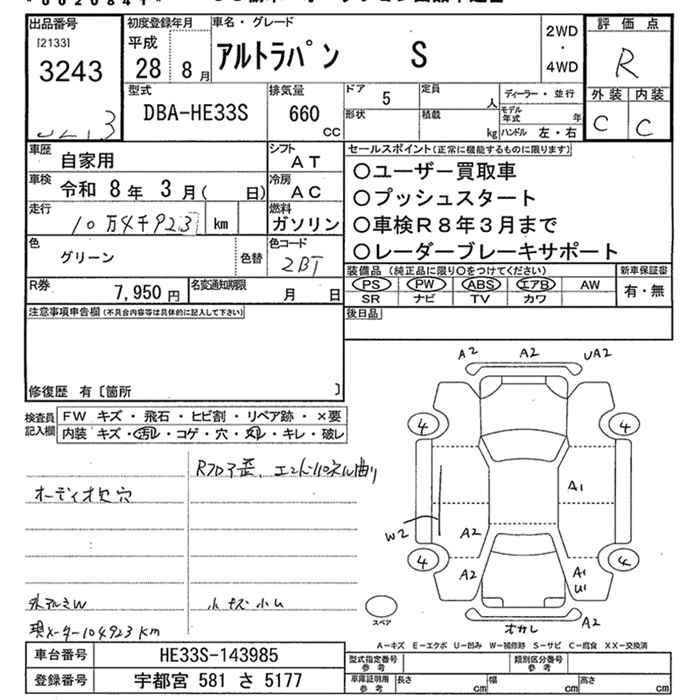 *0020841*
出品番号
[2133]
3243
初度登録年月
平成
28年 8月
車名・グレード
アルトラパン S
2WD
・
4WD
評価点
R
外装 内装
C C
型式
DBA-HE33S
排気量
660
CC
ドア
5
形状
定員
人
積載
kg
ディーラー・並行
モデル年式 年
ハンドル 左・右
車歴 自家用
シフト
AT
車検 令和 8年 3月( 日)
冷房
AC
走行 10万4千923 km
燃料
ガソリン
色 グリーン 色替
色コード
ZBT
R券 7,950円
名変通知期限
月 日
セールスポイント(正常に機能するものに限ります)
○ユーザー買取車
○プッシュスタート
○車検R8年3月まで
○レーダーブレーキサポート
装備品(純正品に限り○をつけてください)
PS PW ABS エアB AW
SR ナビ TV カワ
新車保証書
有・無
後日品
注意事項申告欄(不具合内容等は具体的に記入して下さい)
修復歴 有〔箇所 〕
検査員記入欄
FW キズ・飛石・ヒビ割・リペア跡・×要
内装 キズ・汚レ・コゲ・穴・スレ・キレ・破レ
オーディオ欠 穴
外アルミW
現メーター104923km
小キズ小U
A2 A2 UA2
4 4
A1
W2
A2
4 4
A2
A1
U1
A2
スペア
A-キズ E-エクボ U-凹み W-補修跡 S-サビ C-腐食 XX-交換済
車台番号 HE33S-143985
登録番号 宇都宮 581 さ 5177
型式指定番号
参考
類別区分番号
参考
車庫証明用
参考
長さ cm
幅 cm
高さ cm